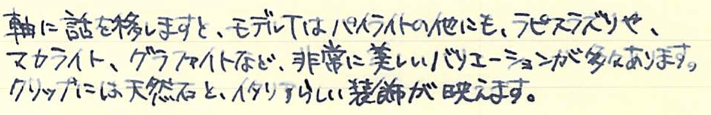 軸に話を移しますと、モデルTはパイライトの他にも、ラピスラズリや、
マカライト、グラファイトなど、非常に美しいバリエーションが多々あります。
クリップには天然石と、イタリアらしい装飾が映えます。